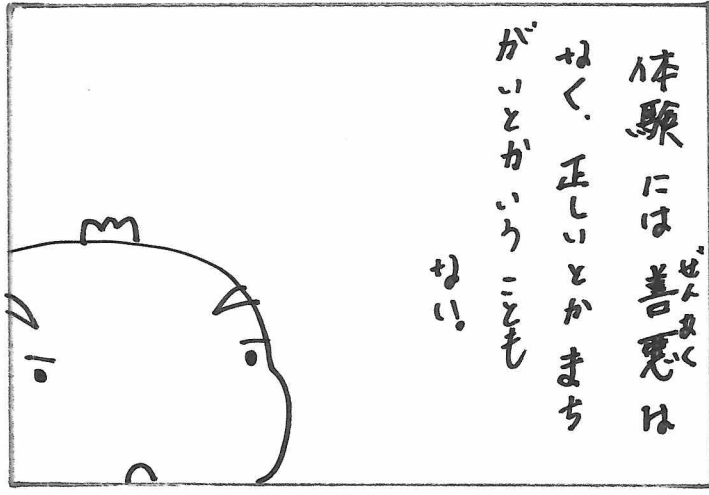 体験には善悪は
ぜんあく
なく、正しいとかまち
がいとかいうことも
ない。